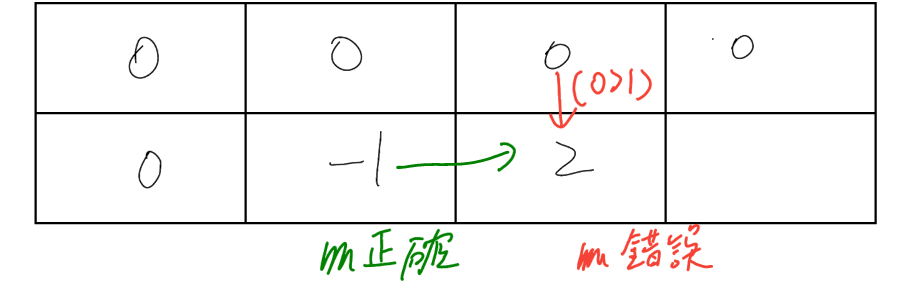 0 0 0 0
(0>1)
0 -1 2
m正確 m錯誤